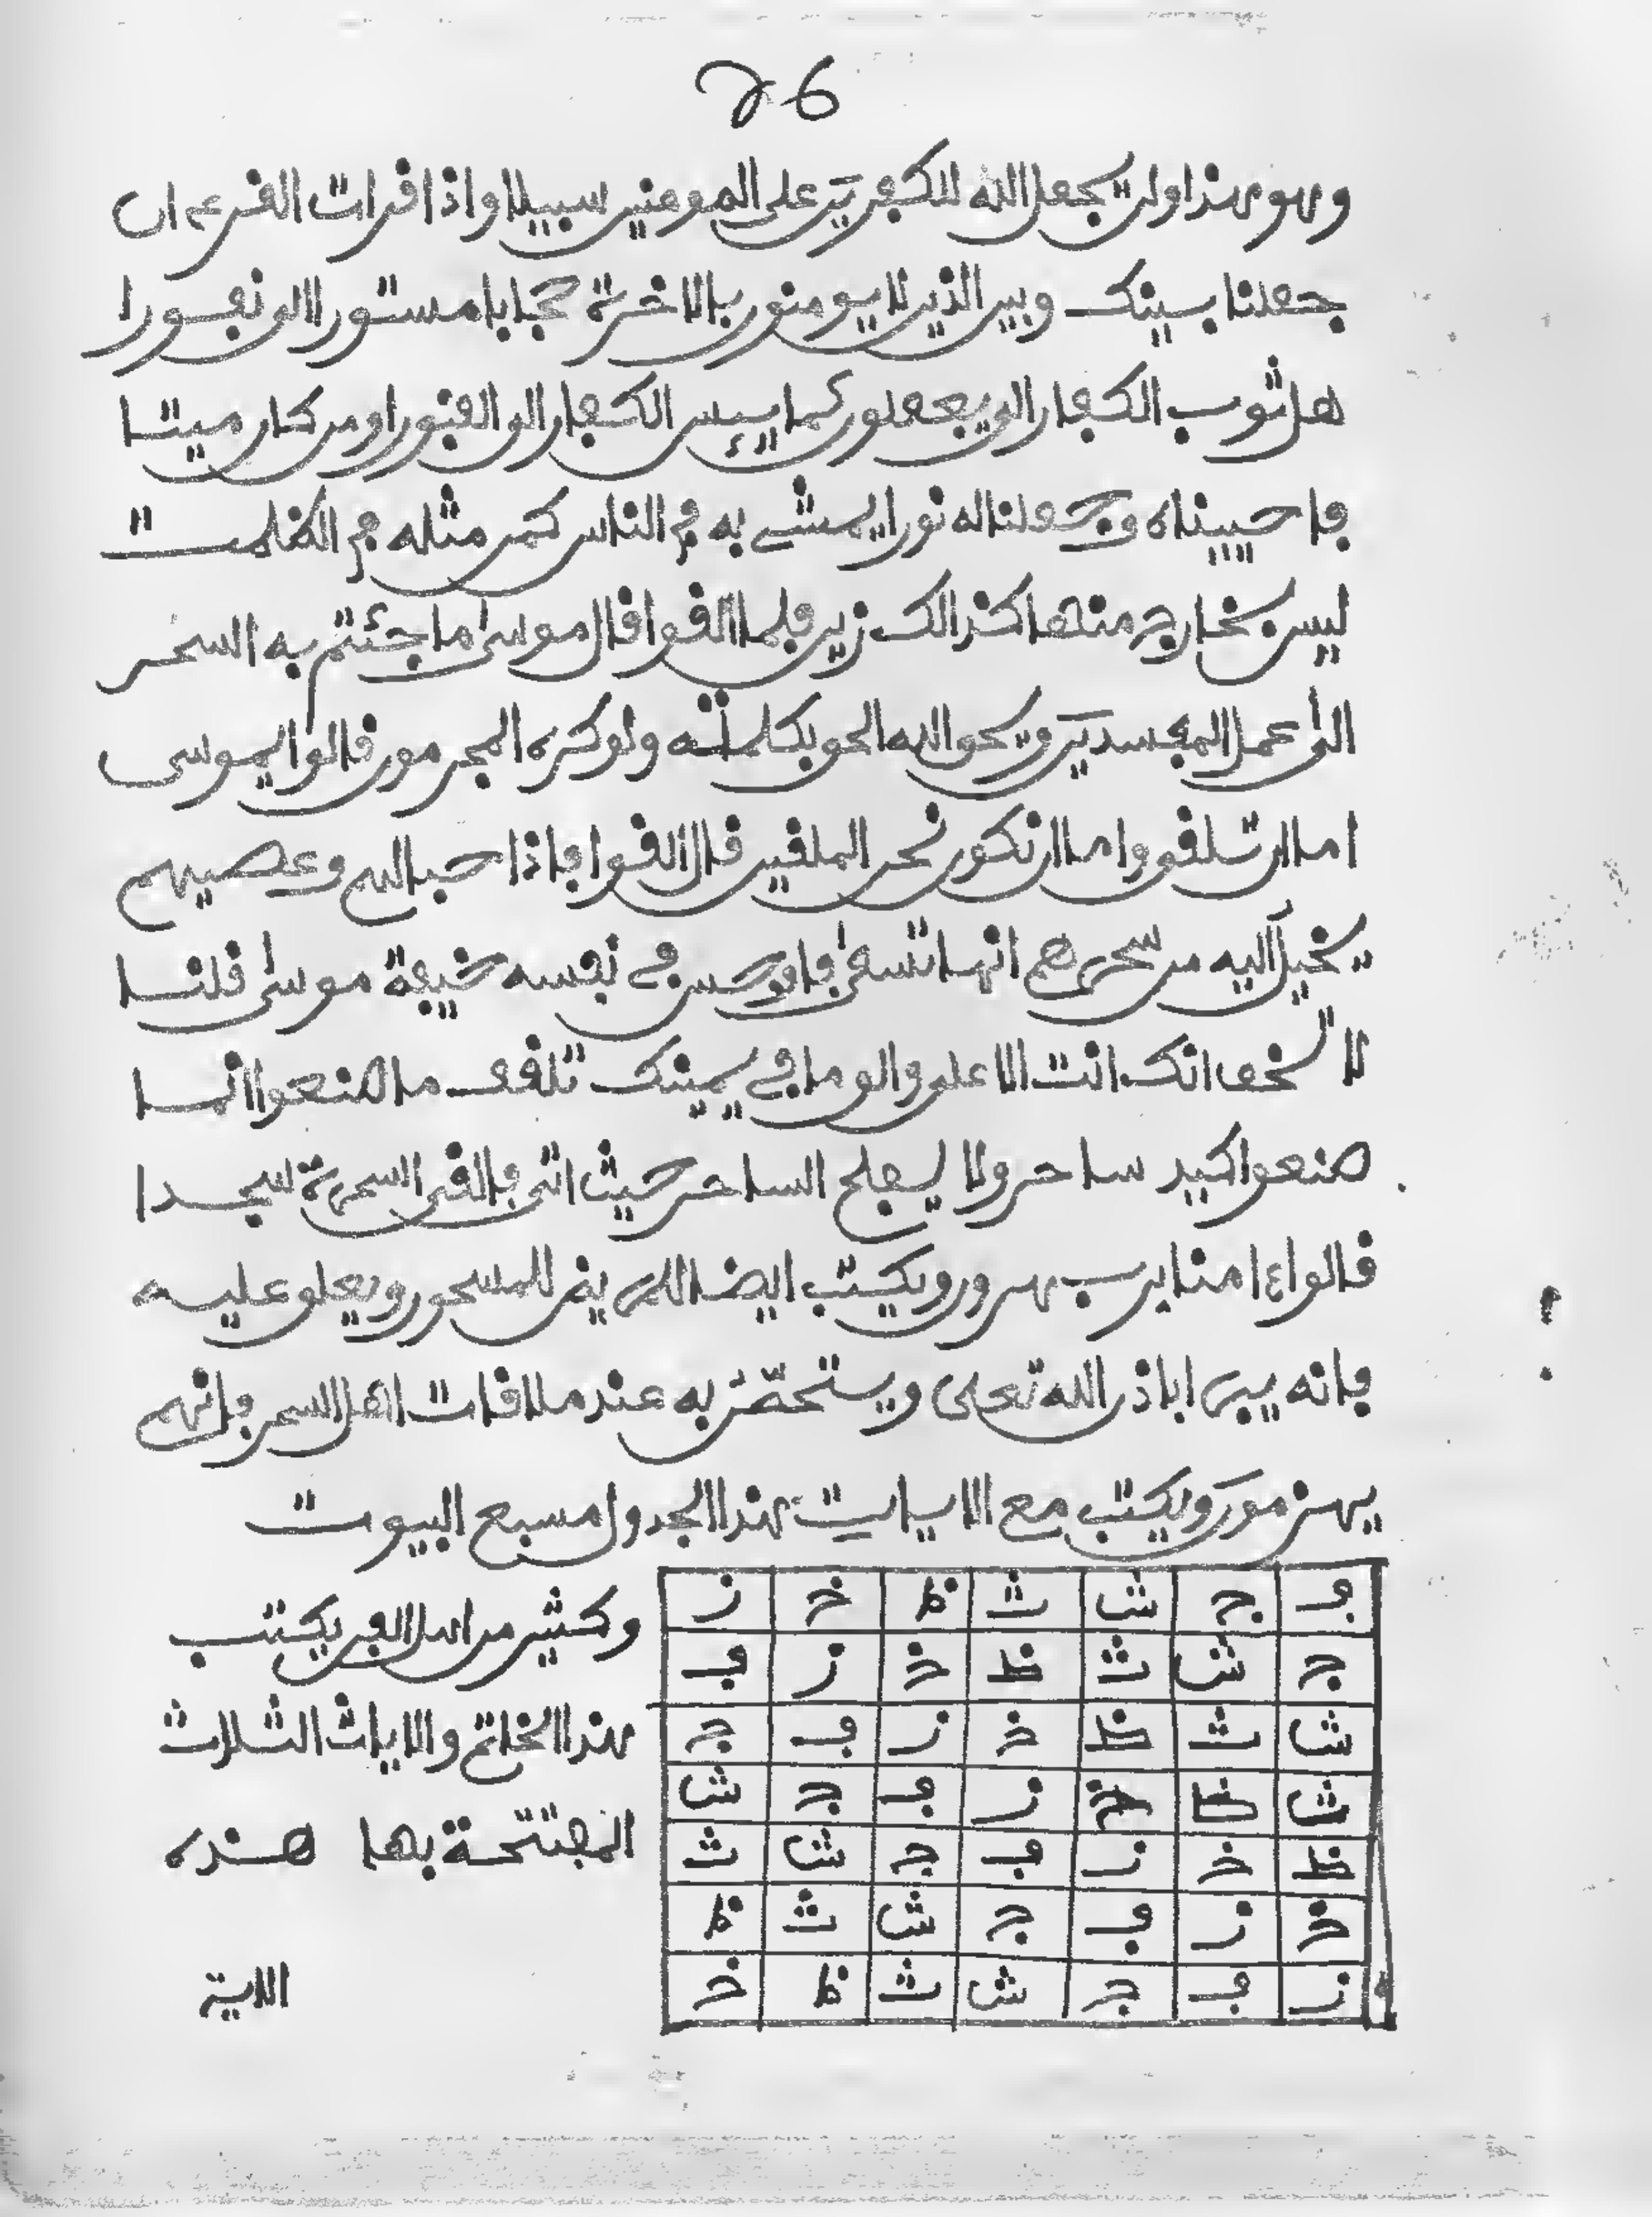 26
وهو هذا ولن يجعل الله للكفرين على المومنين سبيلا واذا قرات القرءان
جعلنا بينك وبين الذين لا يومنون بالاخرة حجابا مستورا الى نفورا
هل ثوب الكفار الى يفعلون كما ييس الكفار الى القبور او من كان ميتا
فاحييناه وجعلنا له نورا يمشي به في الناس كمن مثله في الظلمت
ليس بخارج منها كذالك زين فلما القوا قال موسى ما جئتم به السحر
الى عمل المفسدين ويحق الله الحق بكلماته ولو كره المجرمون قالوا يموسى
اما ان تلقى واما ان نكون نحن الملقين قال القوا فاذا حبالهم وعصيهم
يخيل اليه من سحرهم انها تسعى فاوجس في نفسه خيفة موسى قلنا
لا تخف انك انت الاعلى والق ما في يمينك تلقف ما صنعوا انما
صنعوا كيد ساحر ولا يفلح الساحر حيث اتى فالقى السحرة سجدا
قالوا ءامنا برب هرون ويكتب ايضا للمسحور ويعلق عليه
فانه يبرا باذن الله تعلى ويستحضر به عند ملاقات اهل السحر فانهم
يهزمون ويكتب مع الايات هذا الجدول مسبع البيوت
ف ج ش ث ظ خ ز
ج ش ث ظ خ ز ف
ش ث ظ خ ز ف ج
ش ظ خ ز ف ج ش
ظ خ ز ف ج ش ث
خ ز ف ج ش ث ظ
ز ف ج ش ث ظ خ
وكثير من اهل الفن يكتب
هذا الخاتم والايات الثلاث
المفتتحة بها هذه
الاية